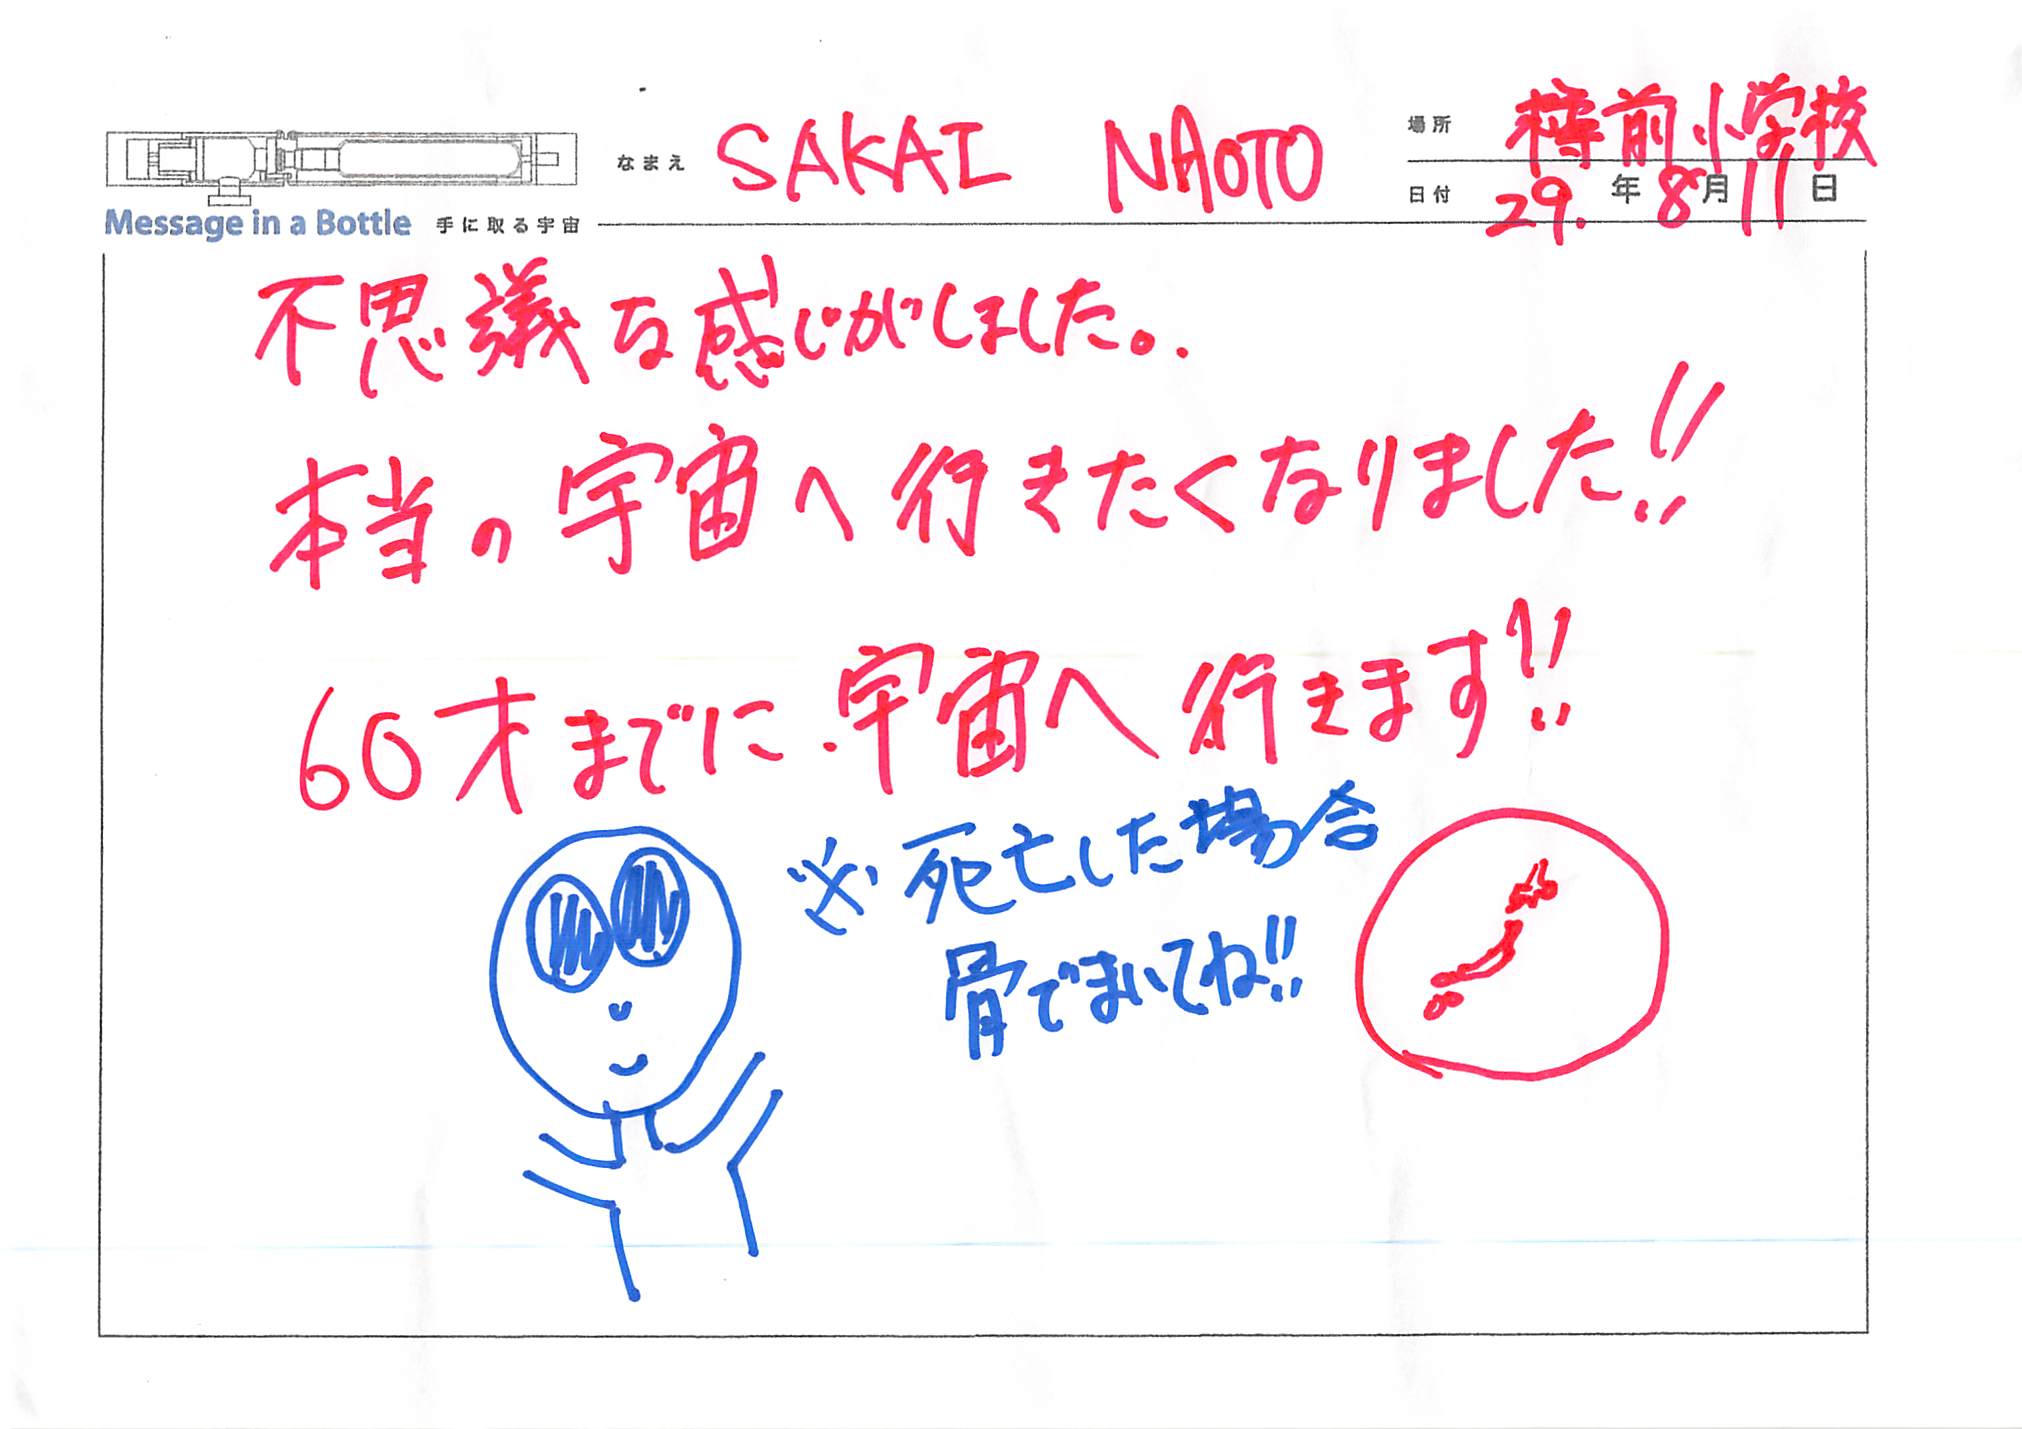 場所 樽前小学校
なまえ SAKAI NAOTO
日付 29.年8月11日
Message in a Bottle 手に取る宇宙
不思議な感じがしました。
本当の宇宙へ行きたくなりました!!
60才までに宇宙へ行きます!!
※死亡した場合
骨でまいてね!!